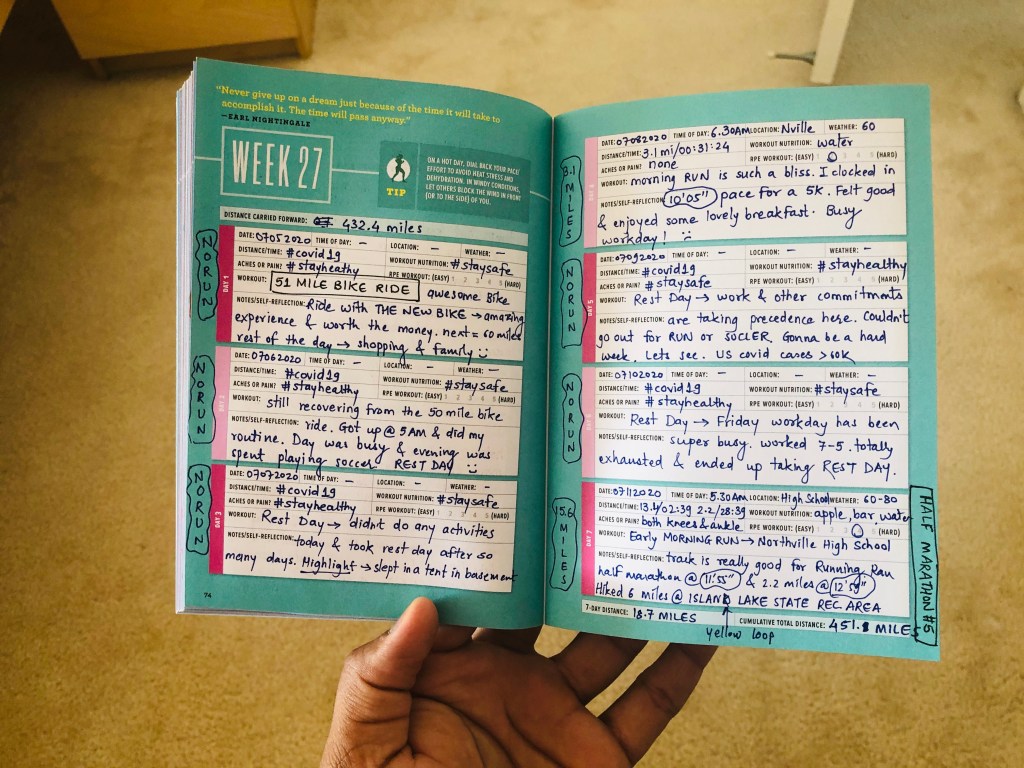 "Never give up on a dream just because of the time it will take to
accomplish it. The time will pass anyway."
—EARL NIGHTINGALE
WEEK 27
TIP
ON A HOT DAY, DIAL BACK YOUR PACE/
EFFORT TO AVOID HEAT STRESS AND
DEHYDRATION. IN WINDY CONDITIONS,
LET OTHERS BLOCK THE WIND IN FRONT
(OR TO THE SIDE) OF YOU.
DISTANCE CARRIED FORWARD: 432.4 miles
NO RUN
DAY 1
DATE: 07052020 TIME OF DAY: – LOCATION: – WEATHER: –
DISTANCE/TIME: #covid19 WORKOUT NUTRITION: #staysafe
ACHES OR PAIN? #stayheathy RPE WORKOUT: (EASY) 1 2 3 4 5 (HARD)
WORKOUT: 51 MILE BIKE RIDE awesome Bike
NOTES/SELF-REFLECTION: Ride with THE NEW BIKE → amazing
experience & worth the money. next = 60 miles
rest of the day → shopping & family :)
NO RUN
DAY 2
DATE: 07062020 TIME OF DAY: – LOCATION: – WEATHER: –
DISTANCE/TIME: #covid19 WORKOUT NUTRITION: #staysafe
ACHES OR PAIN? #stayhealthy RPE WORKOUT: (EASY) 1 2 3 4 5 (HARD)
WORKOUT: still recovering from the 50 mile bike
NOTES/SELF-REFLECTION: ride. Got up @ 5AM & did my
routine. Day was busy & evening was
spent playing soccer REST DAY :)
NO RUN
DAY 3
DATE: 07072020 TIME OF DAY: – LOCATION: – WEATHER: –
DISTANCE/TIME: #covid19 WORKOUT NUTRITION: #staysafe
ACHES OR PAIN? #stayhealthy RPE WORKOUT: (EASY) 1 2 3 4 5 (HARD)
WORKOUT: Rest Day → didnt do any activities
NOTES/SELF-REFLECTION: today & took rest day after so
many days. Highlight → slept in a tent in basement
74
3.1 MILES
DAY 4
DATE: 07082020 TIME OF DAY: 6.30AM LOCATION: Nville WEATHER: 60
DISTANCE/TIME: 3.1mi/00:31:24 WORKOUT NUTRITION: water
ACHES OR PAIN? none RPE WORKOUT: (EASY) 1 2 3 4 5 (HARD)
WORKOUT: morning RUN is such a bliss. I clocked in
NOTES/SELF-REFLECTION: 10'05" pace for a 5K. Felt good
& enjoyed some lovely breakfast. Busy
workday! :)
NO RUN
DAY 5
DATE: 07092020 TIME OF DAY: – LOCATION: – WEATHER: –
DISTANCE/TIME: #covid19 WORKOUT NUTRITION: #stayhealthy
ACHES OR PAIN? #staysafe RPE WORKOUT: (EASY) 1 2 3 4 5 (HARD)
WORKOUT: Rest Day → work & other commitments
NOTES/SELF-REFLECTION: are taking precedence here. Couldn't
go out for RUN or SOCCER. Gonna be a hard
week. Lets see. US covid cases > 60K
NO RUN
DAY 6
DATE: 07102020 TIME OF DAY: – LOCATION: – WEATHER: –
DISTANCE/TIME: #covid19 WORKOUT NUTRITION: #staysafe
ACHES OR PAIN? #stayhealthy RPE WORKOUT: (EASY) 1 2 3 4 5 (HARD)
WORKOUT: Rest Day → Friday workday has been
NOTES/SELF-REFLECTION: super busy. worked 7-5. totally
exhausted & ended up taking REST DAY.
15.6 MILES
DAY 7
DATE: 07112020 TIME OF DAY: 5.30AM LOCATION: High School WEATHER: 60-80
DISTANCE/TIME: 13.4/02:39 2.2/28:39 WORKOUT NUTRITION: apple, bar, water
ACHES OR PAIN? both knees & ankle RPE WORKOUT: (EASY) 1 2 3 4 5 (HARD)
WORKOUT: Early MORNING RUN → Northville High School
NOTES/SELF-REFLECTION: track is really good for Running. Ran
half marathon @ 11'55" & 2.2 miles @ 12'59"
Hiked 6 miles @ ISLAND LAKE STATE REC AREA
7-DAY DISTANCE: 18.7 MILES CUMULATIVE TOTAL DISTANCE: 451.1 MILES
yellow loop
HALF MARATHON #5